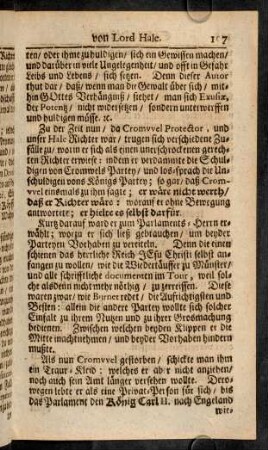 von Lord Hale. 107
ten/ oder ihme zu huldigen/ sich ein Gewissen machen/
und darüber in viele Ungelegenheit/ und offt in Gefahr
Leibs und Lebens/ sich setzen. Dem dieser Autor
thut dar/ daß/ wenn man die Gewalt über sich/ mit-
hin GOttes Verhängniß/ siehet/ man sich Exusix,
der Potentz/ nicht widersetzen/ sondern unterwerffen
und huldigen müsse. &c.
Zu der Zeit nun/ da Cromvvel Protector, und
unser Hale Richter war/ trugen sich verschiedene Zu-
fälle zu/ worin er sich als einen unerschrockenen gerech-
ten Richter erwiese: indem er verdammte die Schul-
digen von Cromwels Partey/ und los-sprach die Un-
schuldigen vons Königs Partey; so gar/ daß Crom-
vvel einsmals zu ihm sagte; er wäre nicht werth/
daß er Richter wäre: worauf er ohne Bewegung
antwortete; er hielte es selbst darfür.
Kurz darauf ward er zum Parlaments-Herrn er-
wählt; wozu er sich ließ gebrauchen/ um beyder
Parteyen Vorhaben zu vereiteln. Denn die einen
schienen das herrliche Reich JEsu Christi selbst an-
fangen zu wollen/ wie die Wiedertäuffer zu Münster/
und alle schrifftliche documenten im Tour, weil sol-
che alsdenn nicht mehr nöthig/ zu zerreissen. Diese
waren zwar/ wie Burnet redet/ die Aufrichtigsten und
Besten: allein die andere Partey wollte sich solcher
Einfalt zu ihrem Nutzen und zu ihrer Großmachung
bedienen. Zwischen welchen beyden Klippen er die
Mitte machte nehmen/ und beyder Vorhaben hindern
mußte.
Als nun Cromvvel gestorben/ schickte man ihm
ein Traur-Kleid: welches er aber nicht anziehen/
noch auch sein Amt länger versehen wollte. Dero-
wegen lebte er als eine Privat-Person für sich/ bis
das Parlament den König Carl II. nach Engeland
wie-